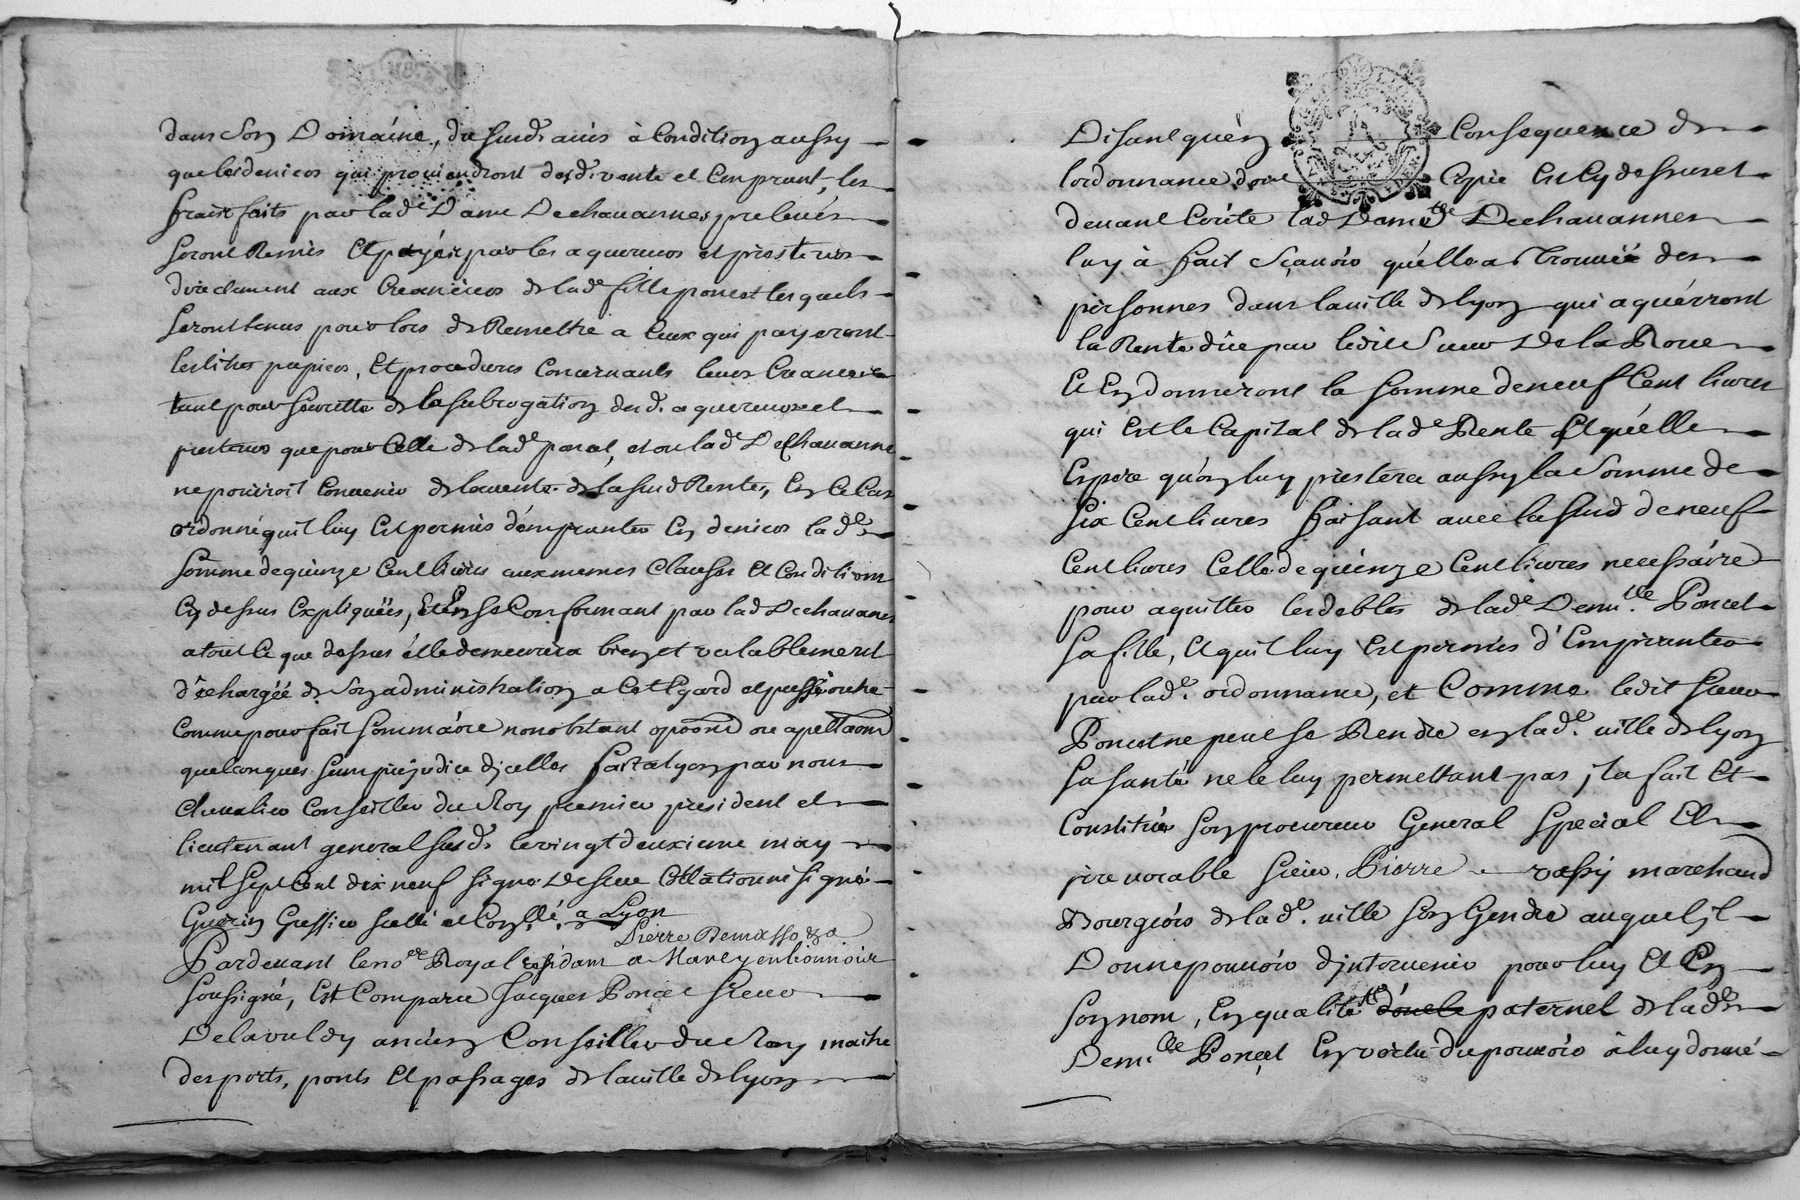 dans son Domaine, du susd. avis à Condition aussy
que les deniers qui proviendront desd. vente et Emprunt, les
fraix faits par lad.e Dame Dechavannes prelevés
seront Remis Et payés par les aquereurs et presteurs
directement aux Creanciers de lad.e fille poncet lesquels
seront tenus pour lors de Remettre a Ceux qui payeront
les titres papiers, Et procedures Concernants leurs Creances
tant pour seurette de la subrogation desd. aquereurs et
presteurs que pour Celle de lad.e poncet, et ou lad.e Dechavanne
ne pouroit Convenir de la vente de la susd Rente, En Ce Cas
ordonné quil luy Est permis d'emprunter En deniers lad.e
somme de quinze Cent livres aux memes Clauses Et Conditions
Cy dessus Expliquées, Et En se Conformant par lad Dechavanes
a tout Ce que dessus elle demeurera bien et valablement
d'echargée de son administration a Cet Egard
Comme pour fait sommaire nonobstant oposons ou apellaons
quelconques sans prejudice dicelles fait a lyon par nous
Chevalier Conseiller du Roy premier president et
lieutenant general susd. le vingt deuxieme may
mil sept Cent dix neuf signé Deseve Collationné signé
Guerin Greffier scellé et Con.llé. a Lyon
Pierre Demasso &a.
Pardevant le no.re Royal residant a
soussigné, Est Comparu Jacques Poncet sieur
Delavaldy ancien Conseiller du Roy maitre
des ports, ponts Et passages de la ville de lyon
Disant quén Consequence de
lordonnance dont Copie Est Cy dessus et
devant Ecrite lad Dame Dechavannes
luy à fait sçavoir quélle a Trouvée des
personnes dans la ville de lyon qui aquérront
la Rente düe par ledit Sieur De la Roue
Et En donneront la somme de neuf Cent livres
qui Est le Capital de lad.e Rente Et quélle
Espere quón luy prestera aussy la Somme de
six Cent livres faisant avec la susd de neuf
Cent livres Celle de quinze Cent livres necessaire
pour aquitter les debtes de lad.e Dem.lle Poncet
sa fille, Et quil luy Est permis d'Emprunter
par lad.e ordonnance, et Comme ledit sieur
Poncet ne peut se Rendre en lad.e ville de lyon
sa santé ne le luy permettant pas, jl a fait Et
Constitué son procureur General special Et
jrevocable sieur Pierre vassy marchand
Bourgeois de lad.e ville son Gendre auquel jl
Donne pouvoir djntervenir pour luy Et En
son nom, En qualité dóncle paternel de lad.e
Dem.lle Poncet En vertu du pouvoir à luy donné